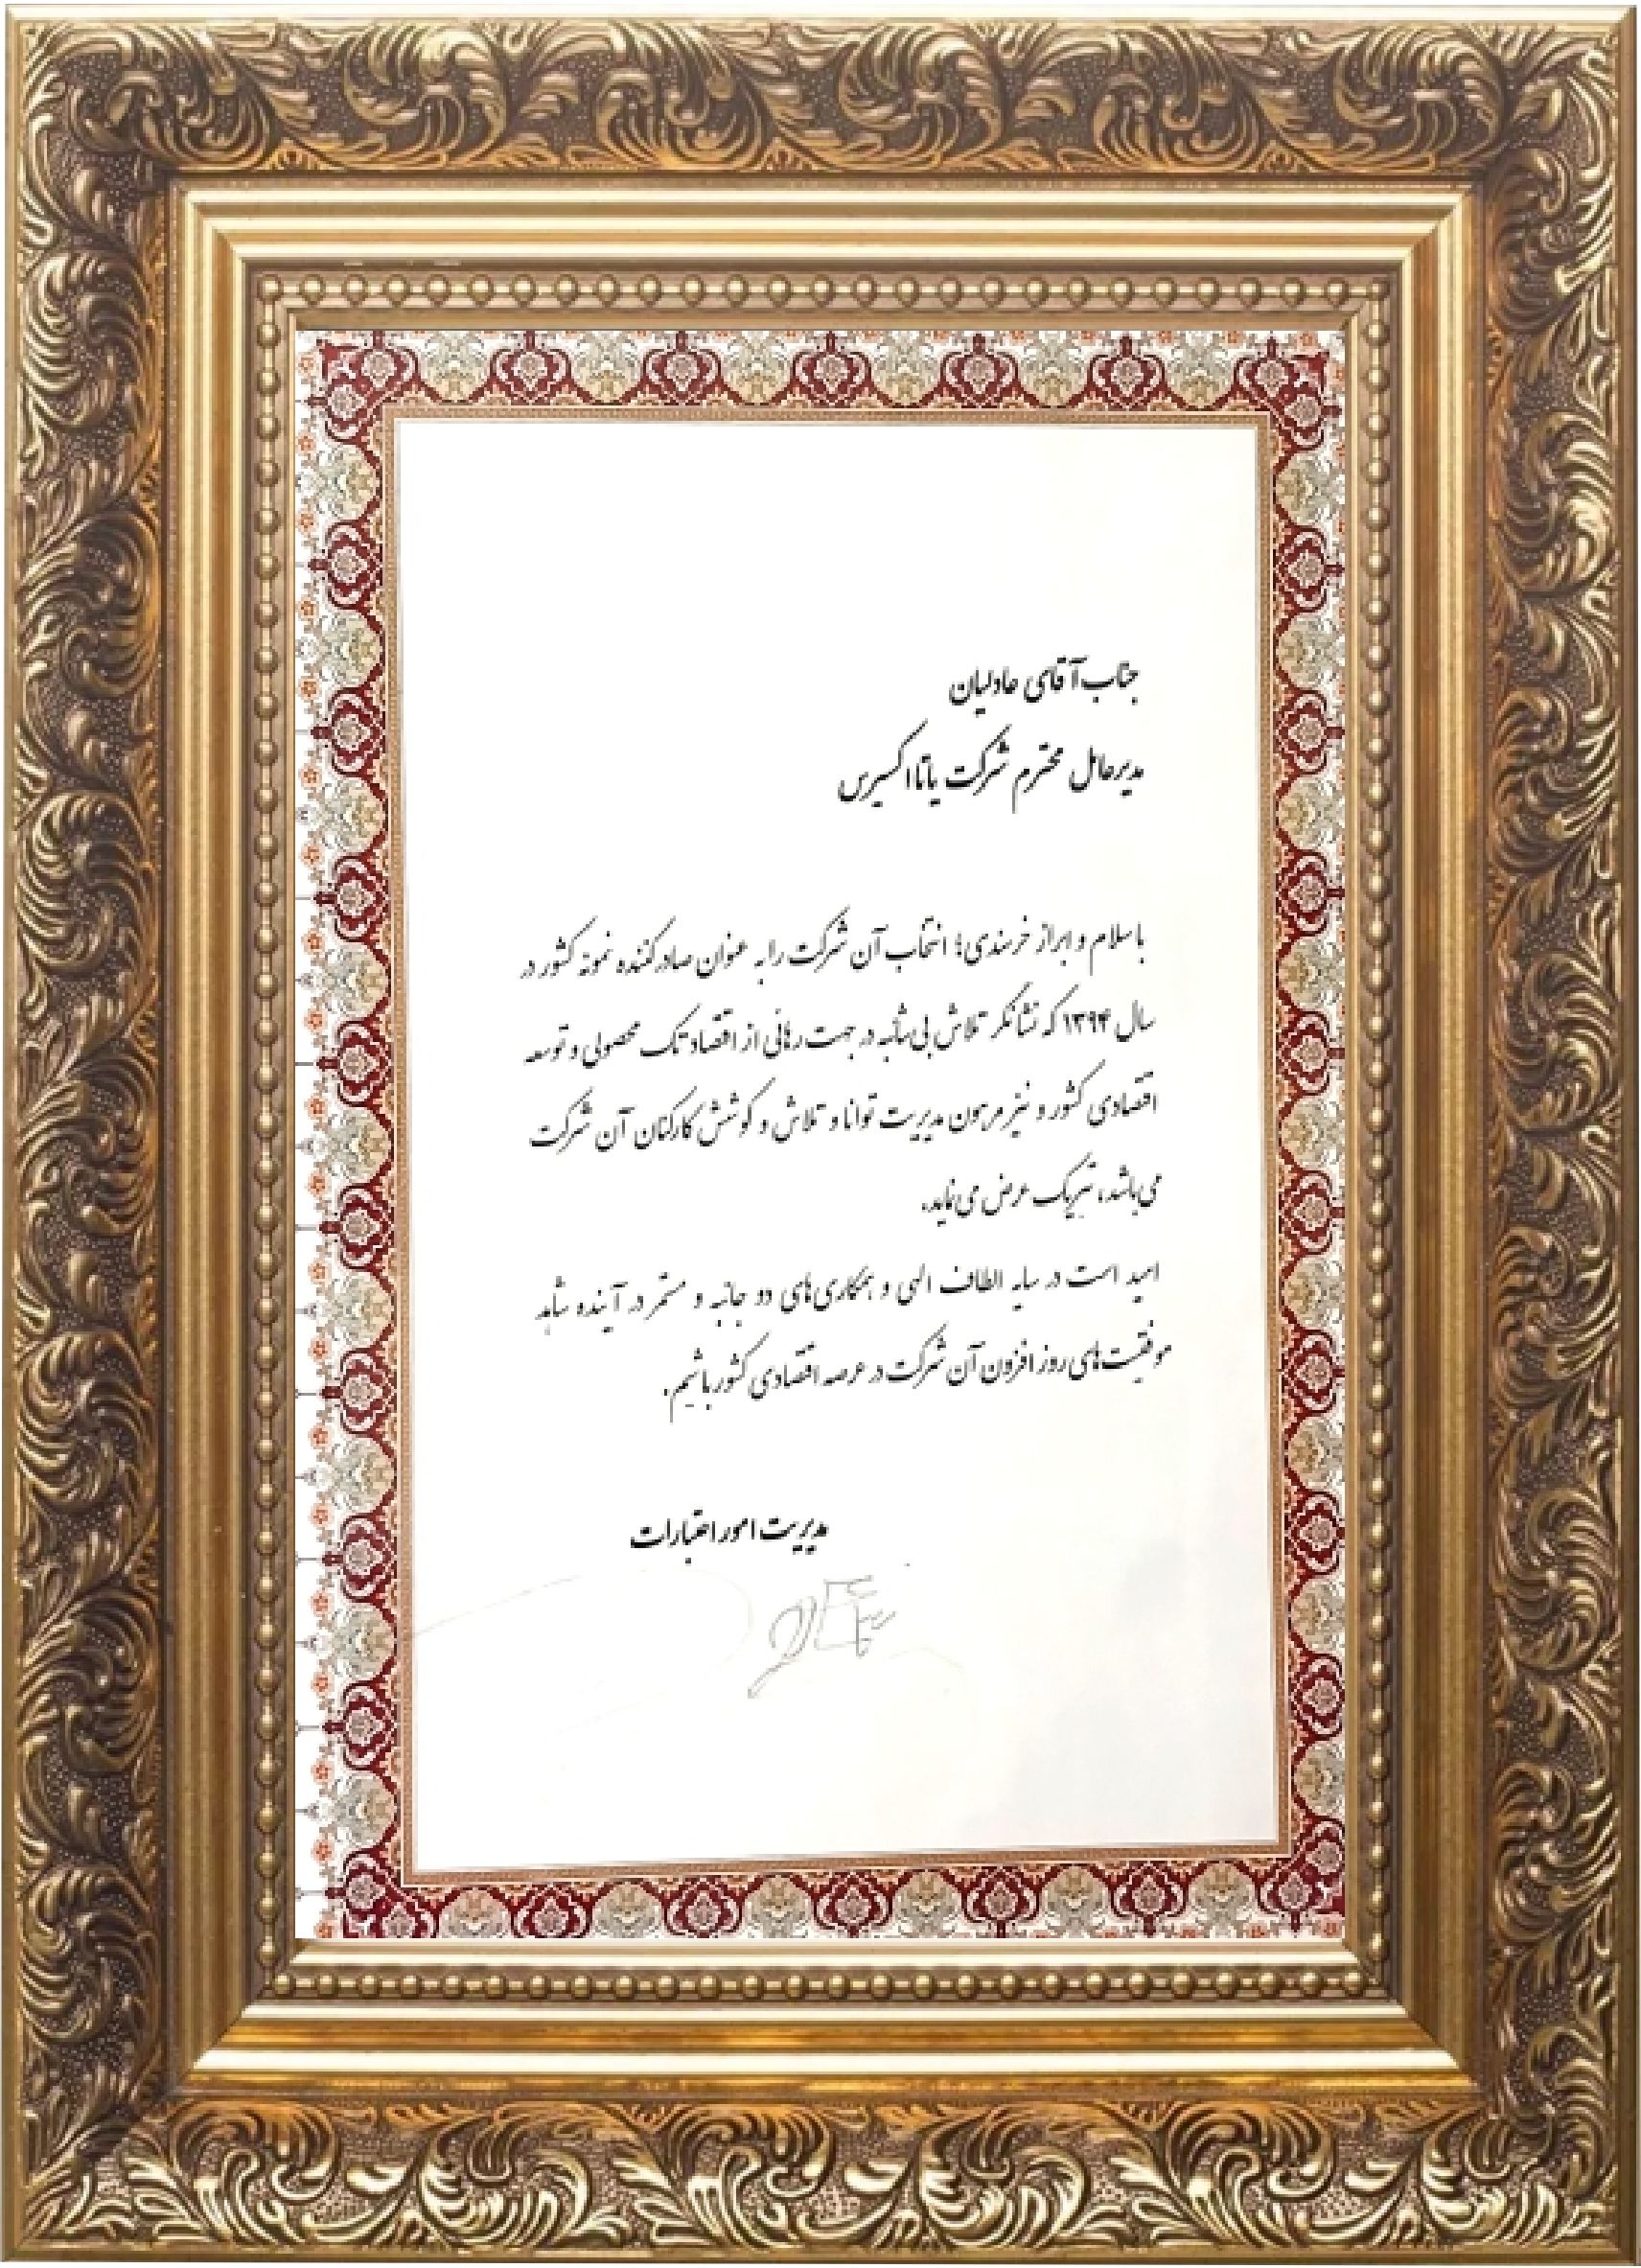 جناب آقای عادلیان
مدیرعامل محترم شرکت یاتا اکسپرس
با سلام و ابراز خرسندی؛ انتخاب آن شرکت را به عنوان صادر کننده نمونه کشور در
سال ۱۳۹۴ که نشانگر تلاش بی‌شائبه در جهت رهائی از اقتصاد تک محصولی و توسعه
اقتصادی کشور و نیز مرهون مدیریت توانا و تلاش و کوشش کارکنان آن شرکت
می‌باشد، تبریک عرض می‌نماید.
امید است در سایه الطاف الهی و همکاری‌های دو جانبه و مستمر در آینده شاهد
موفقیت‌های روز افزون آن شرکت در عرصه اقتصادی کشور باشیم.
مدیریت امور اعتبارات